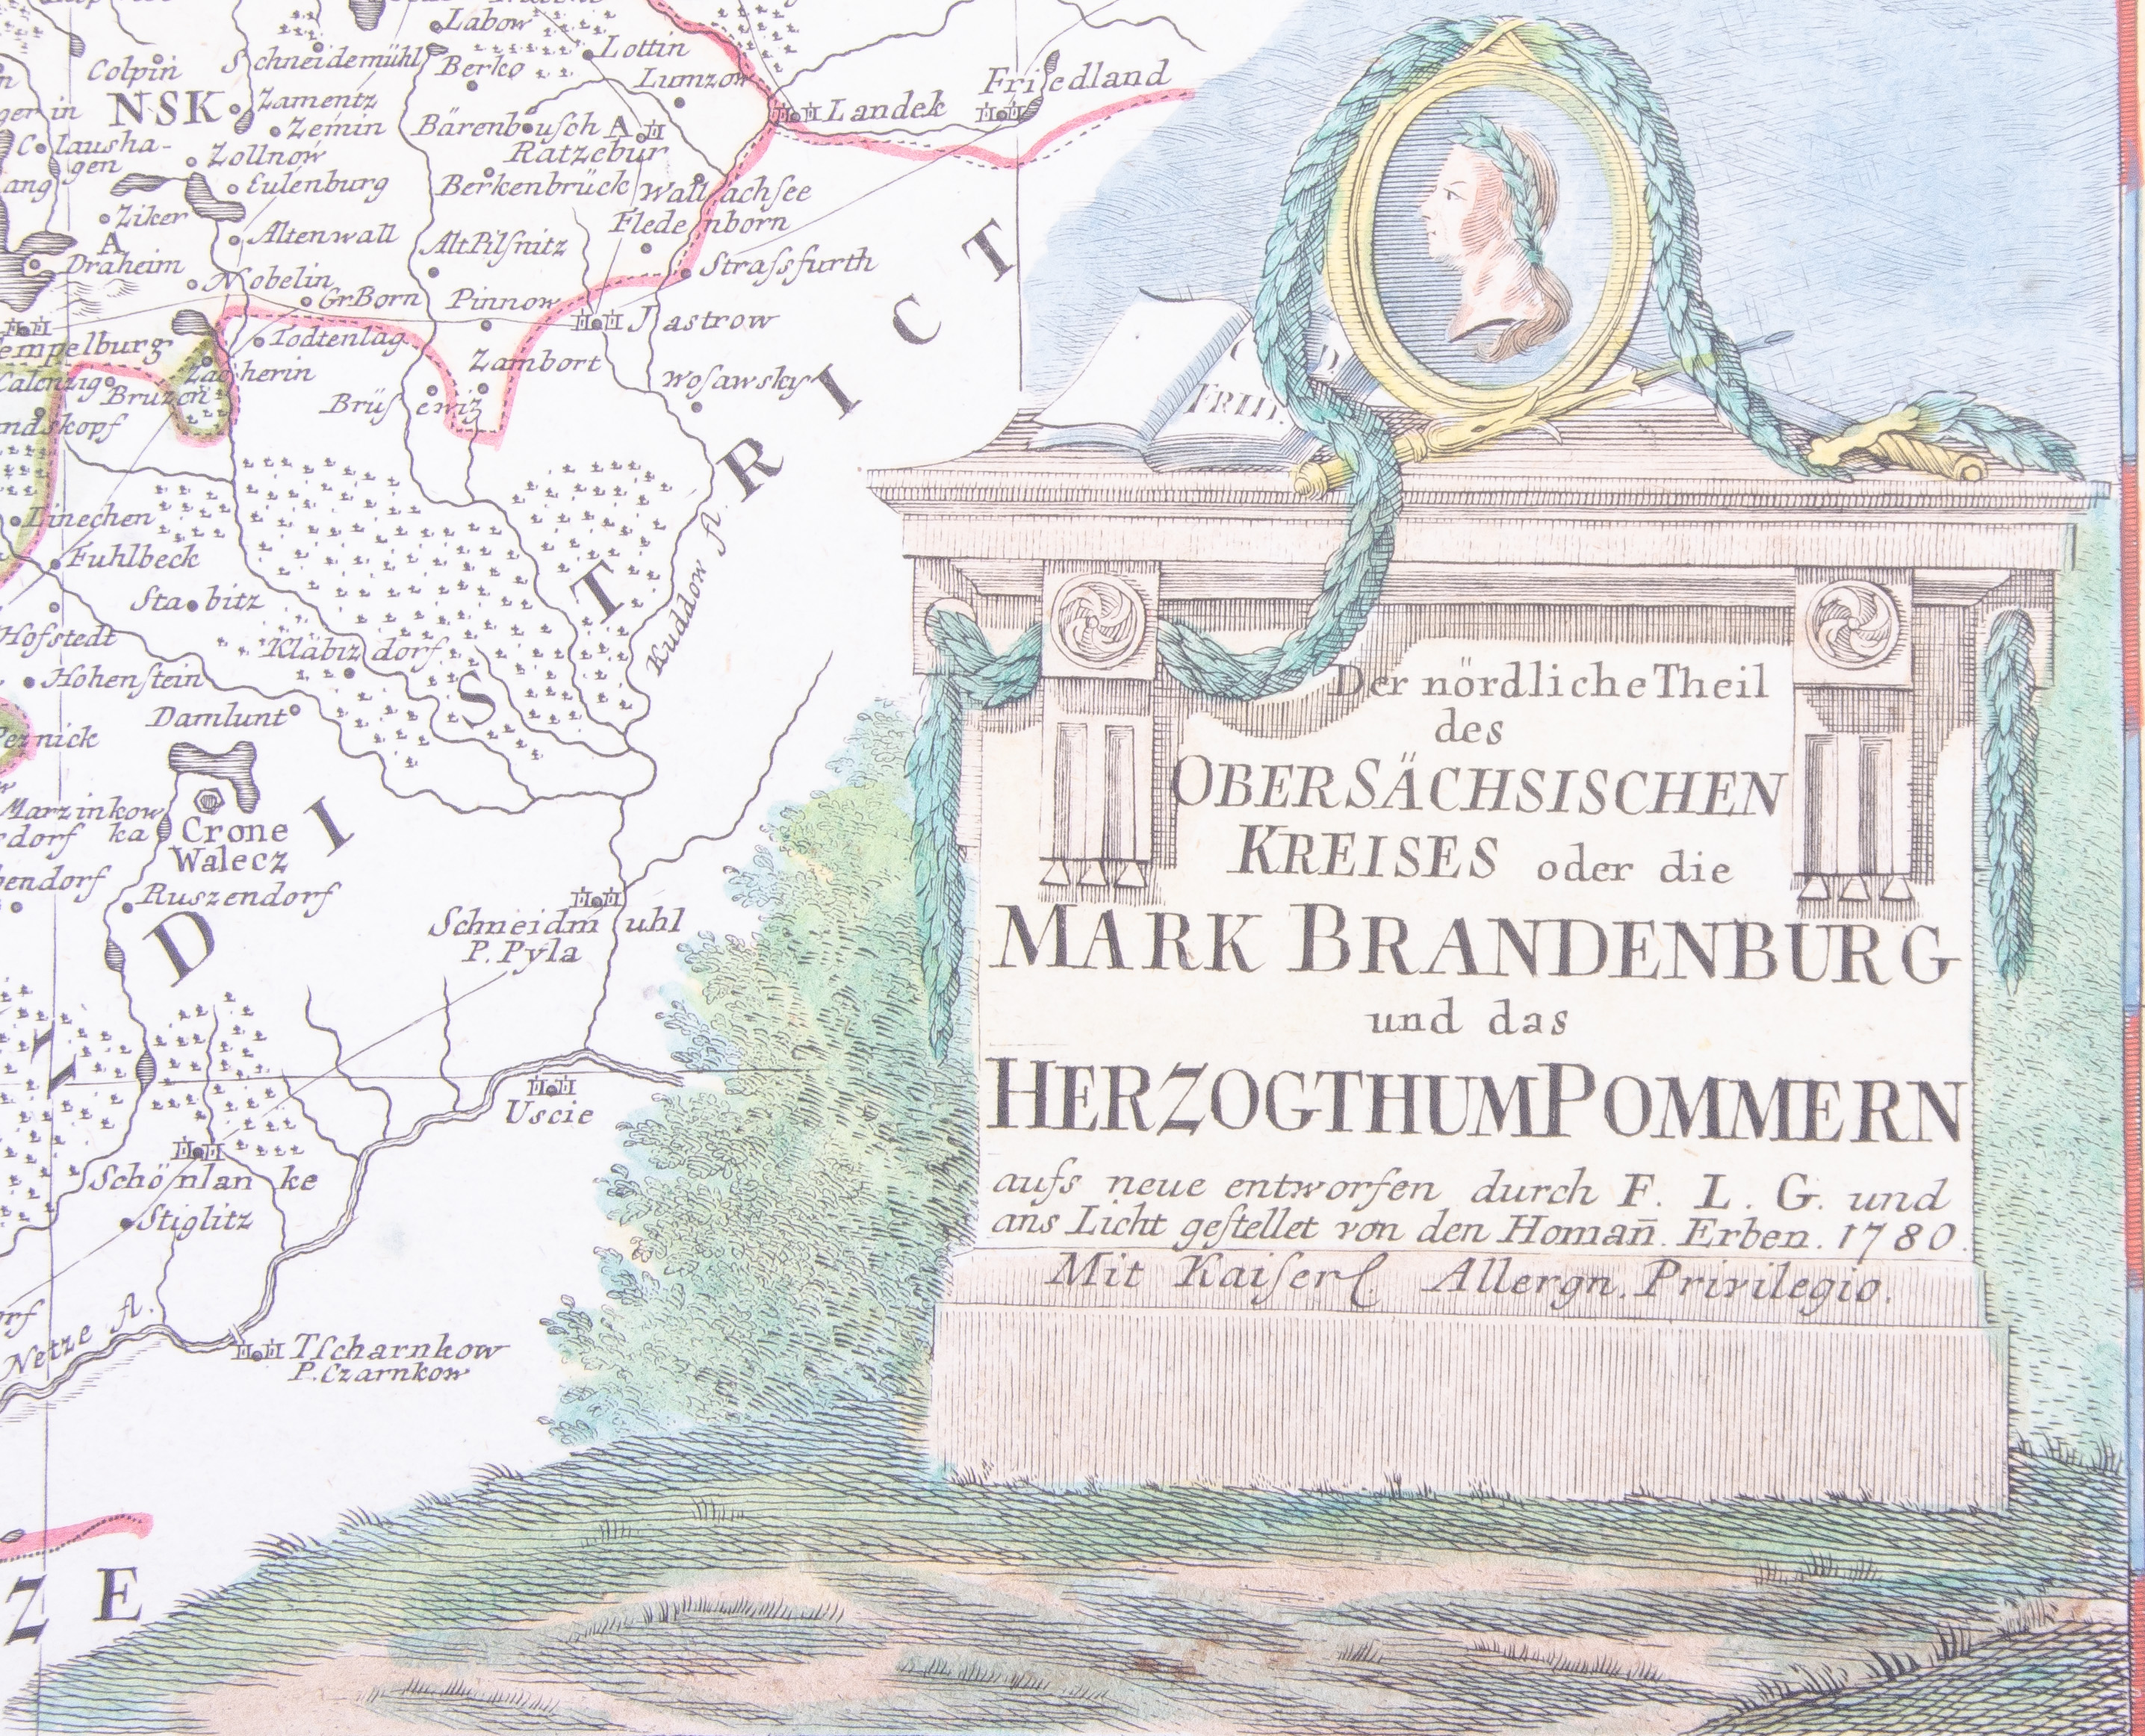 Labow
Lottin
Colpin
Schneidemühl
Berko
Lumzow
Friedland
NSK
Zamentz
Landek
Zemin
Bärenbusch
A
Ratzebur
Colausha-
gen
Zollnow
Eulenburg
Berkenbrück
Wallachsee
Ziker
Fledenborn
A
Draheim
Altenwall
Alt Pilſnitz
Straſsfurth
Nobelin
Gr Born
Pinnow
Jastrow
empelburg
Todtenlag
Zacherin
Zambort
Calenzig
Bruzen
Brüſewiz
Wosawsky
ndskopf
Linechen
Fuhlbeck
Stabitz
Kuddow fl.
Hofstedt
Kläbizdorf
Hohenſtein
Damlunt
Peznick
Marzinkow
Crone
Walecz
Ruszendorf
Schneidmuhl
P. Pyla
DISTRICT
Uscie
Schönlanke
Stiglitz
Netze fl.
Tſcharnkow
P. Czarnkow
ZE
FRID.
Der nördliche Theil
des
OBERSÄCHSISCHEN
KREISES oder die
MARK BRANDENBURG
und das
HERZOGTHUM POMMERN
aufs neue entworfen durch F. L. G. und
ans Licht geſtellet von den Homan̄. Erben. 1780.
Mit Kaiſerl. Allergn. Privilegio.